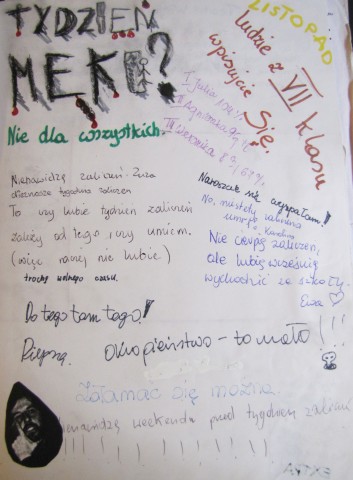 TYDZIEŃ
MĘKI?
LISTOPAD
Ludzie z VII klasy
wpisujcie się.
Nie dla wszystkich.
I Julia
II Agnieszka
III Weronika
Nienawidzę zaliczeń. Zuza
tygodnia zaliczeń
To czy lubię tydzień zaliczeń
zależy od tego, czy umiem.
(więc raczej nie lubię)
trochę wolnego czasu.
No, niestety
umrę. Karolina
Nie cierpię zaliczeń,
ale lubię wcześniej
wychodzić ze szkoły.
Ewa
Do tego tam tego!
Piepszą.
Okropieństwo - to mało!!!
Załamać się można.
weekendu przed tygodniem zaliczeń